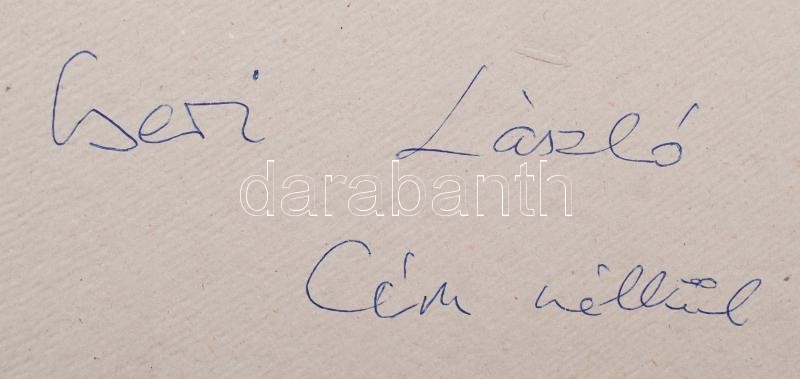 Cseri László
darabanth
Cím nélkül